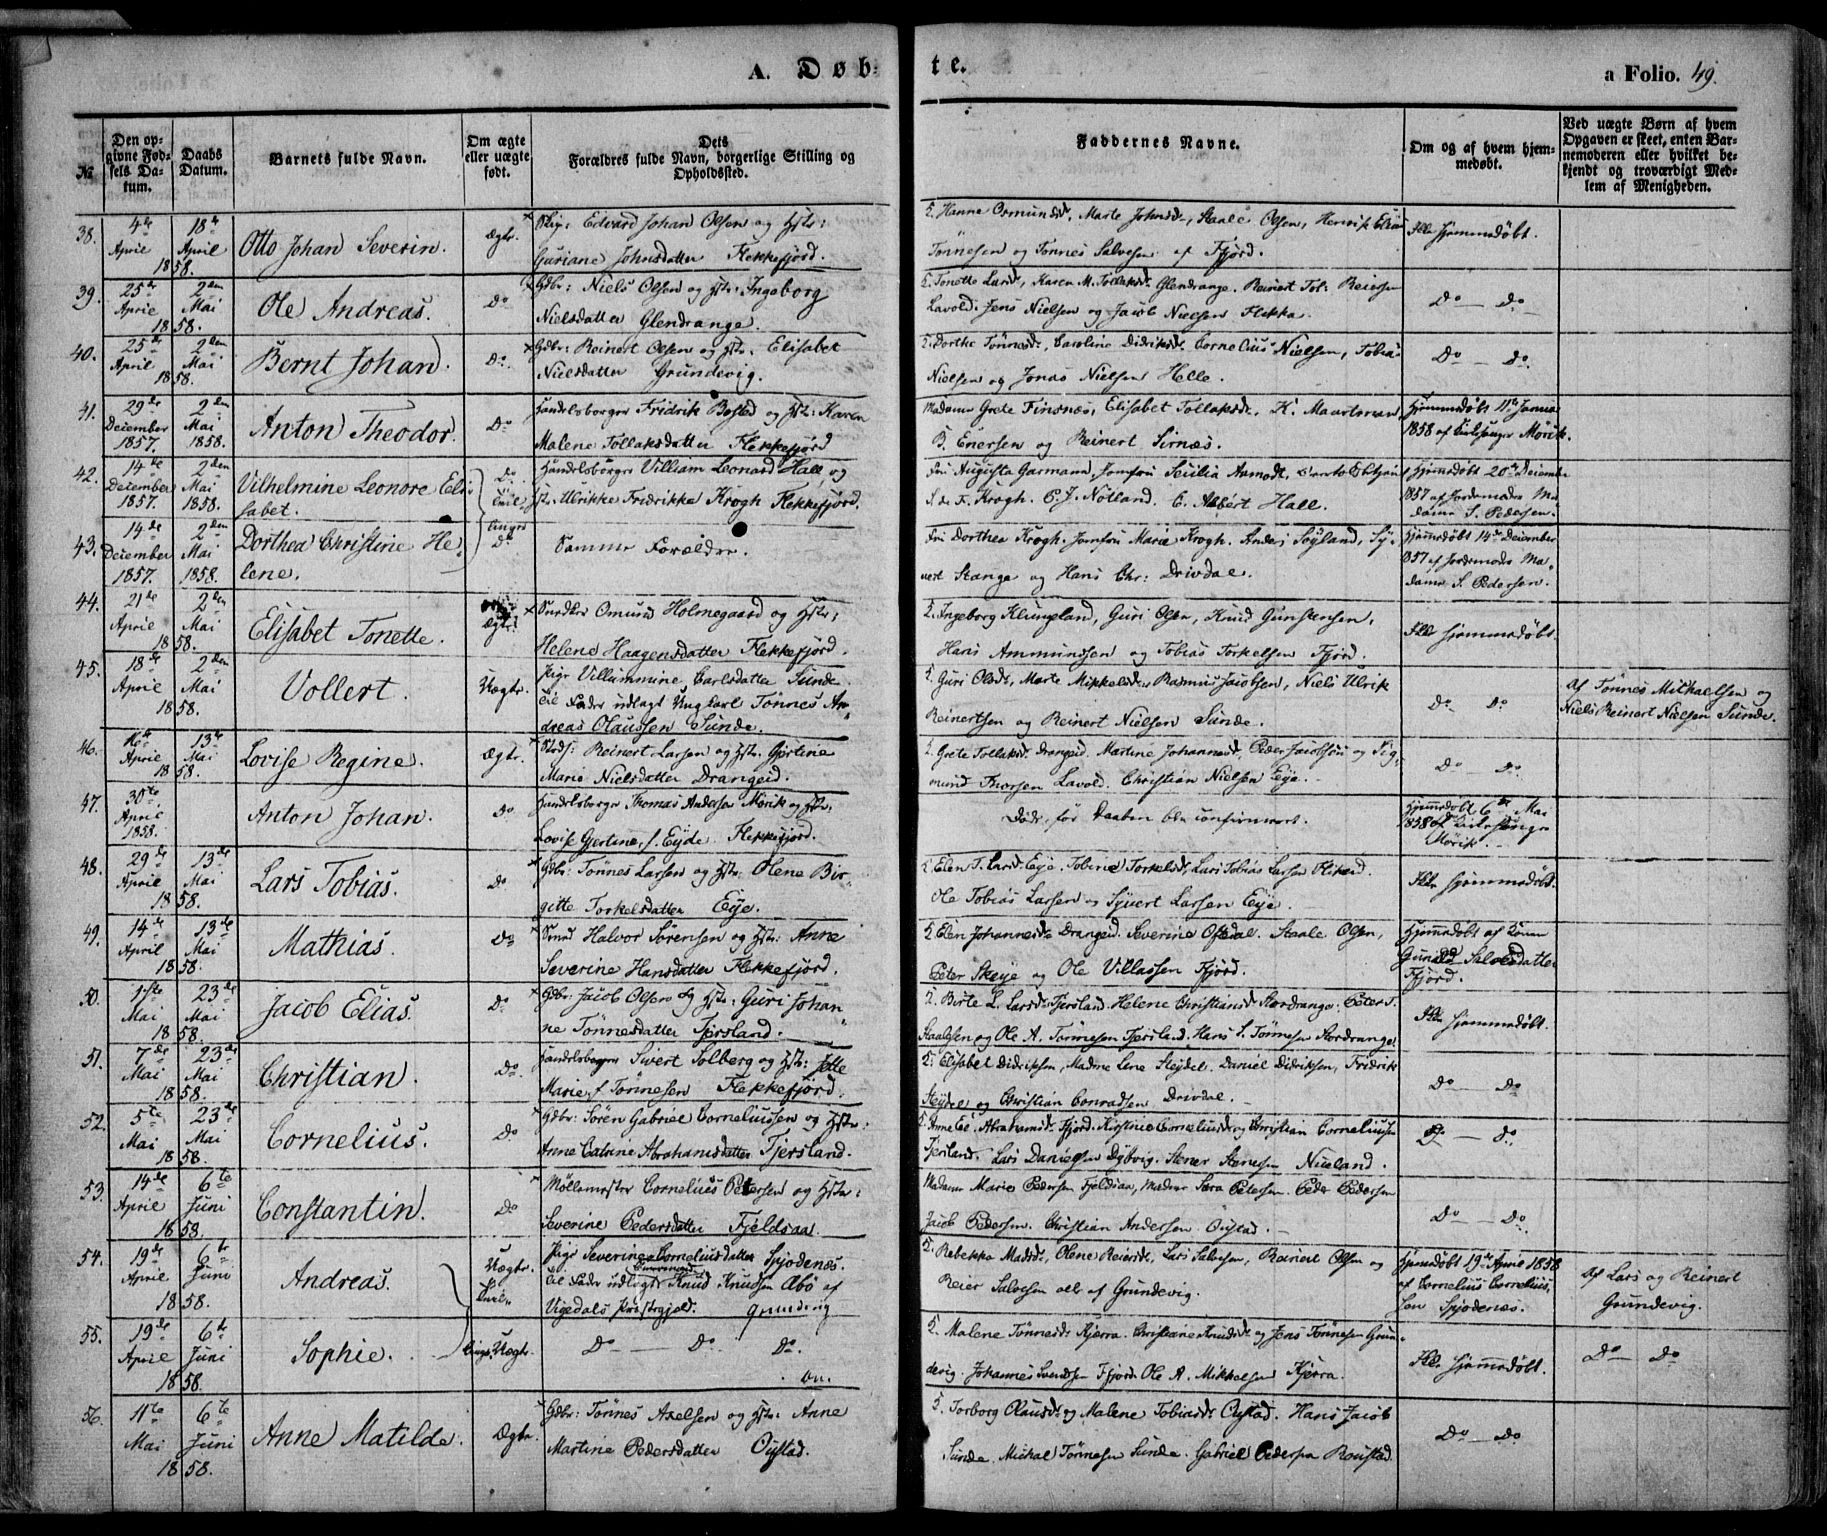 A. Døb-
te.
a Folio. 49.
№
Den opgivne Fødsels Datum.
Daabs Datum.
Barnets fulde Navn.
Om ægte eller uægte født.
Dets Forældres fulde Navn, borgerlige Stilling og Opholdssted.
Faddernes Navne.
Om og af hvem hjemmedøbt.
Ved uægte Børn af hvem Opgaven er skeet, enten Barnemoderen eller hvilket bekjendt og troværdigt Medlem af Menigheden.
38. 4de April 18de April 1858. Otto Johan Severin. Ægte. Edvard Johan Olsen og Hstr:
Guriane Johnsdatter Flekkefjord.
Hanne Osmundsd. Marte Johnsd., Staale Olsen, Henrik Elias
Tönnesen og Tonnes Salvesen af Fjord.
Ikke hjemmedøbt.
39. 25de April 2den Mai 1858. Ole Andreas. Do Gdbr: Niels Olsen og Hstr: Ingeborg
Nielsdatter Glendrange.
Tonette Larsd. Karen M. Tollaksd. Glendrange. Reinert Tob: Reiersen
Lavold. Jens Nielsen og Jacob Nielsen Flikka.
Do — Do
40. 25de April 2den Mai 1858. Bernt Johan. Do. Gdbr: Reinert Olsen og Hstr. Elisabet
Nielsdatter Grundevig.
Dorthe Tönnesd., Caroline Didriksd. Cornelius Nielsen, Tobias
Nielsen og Jonas Nielsen Helle.
Do — Do
41. 29de December 1857. 2den Mai 1858. Anton Theodor. Do Handelsborger Fridrik Bosted og Hstr: Karen
Malene Tollaksdatter Flekkefjord
Madame Grete Finsnes, Elisabet Tollaksd., K. Maartmann
B. Enersen og Reinert Sirnæs.
Hjemmedøbt 11te Januar
1858 af Kirkesanger Mörik.
42. 14de December 1857. 2den Mai 1858. Vilhelmine Leonore Eli-
sabet.
Do Tvil- Handelsborger William Leonard Hall og
Hstr. Ulrikke Fredrikke Krogh Flekkefjord.
Fru Augusta Garmann, Jomfru Secilia Aamodt,
S. de F. Krogh. P. J. Nötland. E. Albert Hall.
Hjemdøbt 20de December
1857 af Jordemoder Ma-
dame S. Pedersen.
43. 14de December 1857. 2den Mai 1858. Dorthea Christine He-
lene.
linger Do Samme Forældre.
Fru Dorthea Krogh. Jomfru Marie Krogh. Anders Söyland, Sy-
vert Stange og Hans Chr: Drivdal.
Hjemmedøbt 14de December
1857 af Jordemoder Ma-
dame S. Pedersen.
44. 21de April 2den Mai 1858. Elisabet Tonette. Ægte. Snedker Omund Holmegaard og Hstr:
Helene Haagensdatter Flekkefjord.
Ingeborg Klungland, Guri Olsen, Knud Gunstensen,
Hans Ammundsen og Tobias Torkelsen Fjord.
Ikke hjemmedøbt.
45. 18de April 2den Mai 1858. Vollert. Uægte. Pige Villummine Carlsdatter Sunde.
til Fader udlagt Ungkarl Tönnes An-
dreas Olaussen Sunde.
Guri Olsd., Marte Mikkelsd., Rasmus Jacobsen, Niels Ulrik
Reinertsen og Reinert Nielsen Sunde.
Do Do
Af Tönnes Michaelsen og
Niels Reinert Nielsen Sunde.
46. 16de April 13de Mai 1858. Lovise Regine. Ægte. Reinert Larsen og Hstr. Gjertine
Marie Nielsdatter Drangeid.
Grete Tollaksd. Drangeid. Martine Johannesd., Peder Jacobsen og Sig-
mund Thorsen Lavold. Christian Nielsen Eye.
Do Do.
47. 30te April 1858. Anton Johan. Do Handelsborger Thomas Andersen Mörik og Hstr.
Lovise Gjertine, f. Eyde Flekkefjord.
Döde för Daaben blev confirmeret.
Hjemmedøbt 6te Mai
1858 af Kirkesanger
Mörik.
48. 29de April 13de Mai 1858. Lars Tobias. Do Gdbr: Tönnes Larsen og Hstr: Olene Bir-
gitte Torkelsdatter Eye.
Elen T. Larsd. Eye. Tobine Torkelsd., Lars Tobias Larsen Flikeid.
Ole Tobias Larsen og Syvert Larsen Eye.
Ikke hjemmedøbt.
49. 14de April 13de Mai 1858. Mathias. Do Halvor Sörensen og Hstr: Anne
Severine Hansdatter Flekkefjord.
Elen Johannesd. Drangeid. Severine Oftedal. Staale Olsen,
Peter Skeye og Ole Villassen Fjord.
Hjemmedøbt af Konen
Gunild Salvesdatter
Fjord.
50. 1ste Mai 23de Mai 1858. Jacob Elias. Do Gdbr: Jacob Olsen og Hstr: Guri Johan-
ne Tönnesdatter Fjersland.
Birte L. Larsd. Fjersland. Helene Christiansd. Stordrange. Peter S.
Staalesen og Ole A. Tönnesen Fjersland. Hans S. Tönnesen Stordrange.
Ikke hjemmedøbt.
51. 7de Mai 23de Mai 1858. Christian. Do. Handelsborger Sivert Solberg og Hstr: Jette
Marie, f. Tönnesen Flekkefjord.
Elisabet Didriksen, Madme Lene Stejdel. Daniel Didriksen, Fridrik
Stejdel og Christian Conradsen Drivdal.
Do Do
52. 5te Mai 23de Mai 1858. Cornelius. Do Gdbr: Sören Gabriel Corneliussen og Hstr:
Anne Catrine Abrahamsdatter Fjersland.
Anne El. Abrahamsd. Fjord. Kirstine Corneliusd. og Christian Corneliussen
Fjersland. Lars Danielsen Dybvig. Stener Stenersen Nueland.
Do — Do.
53. 14de April 6te Juni 1858. Constantin. Do Möllemester Cornelius Petersen og Hstr:
Severine Pedersdatter Fjeldsaa.
Madame Marie Pedersen Fjeldsaa, Madame Sara Petersen. Peder Pedersen
Jacob Pedersen. Christian Andersen Oysted.
Do — Do
54. 19de April 6te Juni 1858. Andreas. Uægte. Tvil- Pige Severine Corneliusdatter Spjodenes.
til Fader udlagt Knud Knudsen Æbö af
Vigedals Præstegjeld. Grundevig
Rebekka Madsd., Olene Reiersd., Lars Salvesen, Reinert Olsen og
Reier Salvesen alle af Grundevig.
Hjemdøbt 19de April 1858
af Cornelius Cornelius-
sen Spjodenæs.
Af Lars og Reinert
Grundevig.
55. 19de April 6te Juni 1858. Sophie. linger. Uægte. Do — Do Do.
Malene Tönnesd. Kjerra. Christiane Knudsd. og Jens Tönnesen Grun-
devig. Johannes Svendsen Fjord. Ole A. Mikkelsen Kjerra.
Ikke hjemmedøbt.
Do — Do
56. 11te Mai 6te Juni 1858. Anne Matilde. Ægte. Gdbr: Tönnes Axelsen og Hstr: Anne
Martine Pedersdatter Oysted.
Torborg Olausd. og Malene Tobiasd. Oysted. Hans Jacob
Sunde. Mickal Tönnesen Sunde. Gabriel Pedersen Roustad.
Do — Do